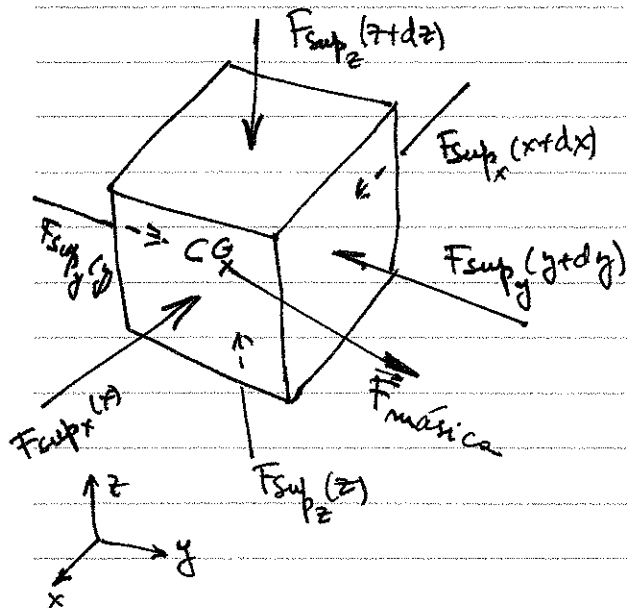 Fsup_z(z+dz)
Fsup_x(x+dx)
Fsup_y(y)
CG
Fsup_y(y+dy)
Fsup_x(x)
F⃗másica
Fsup_z(z)
z
y
x